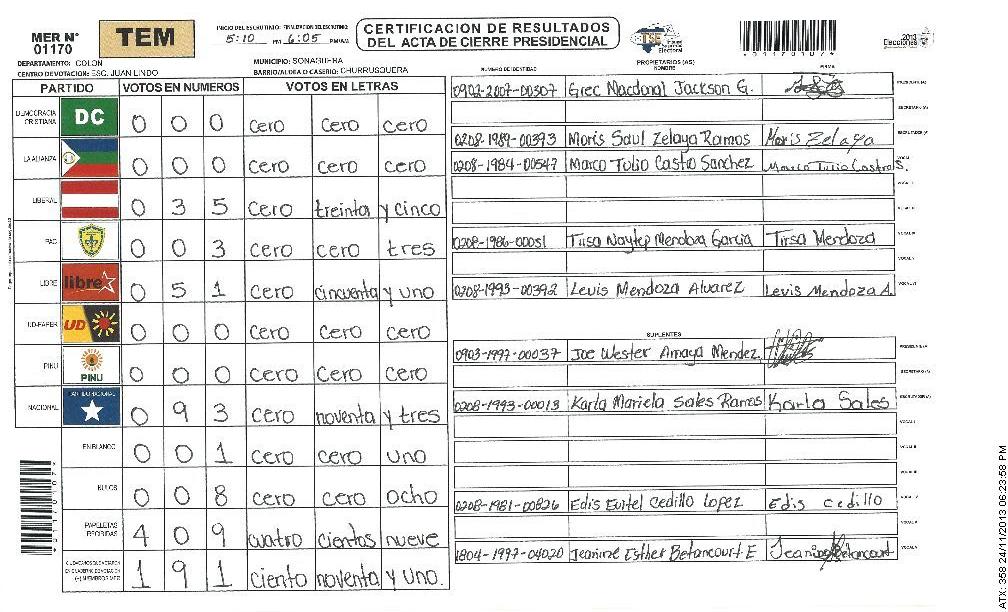 MER N° 01170
TEM
INICIO DEL ESCRUTINIO: 5:10 PM
FINALIZACION DEL ESCRUTINIO: 6:05 PM/AM
CERTIFICACION DE RESULTADOS
DEL ACTA DE CIERRE PRESIDENCIAL
TSE
2013
Elecciones
DEPARTAMENTO: COLON
MUNICIPIO: SONAGUERA
CENTRO DE VOTACION: ESC. JUAN LINDO
BARRIO/ALDEA O CASERIO: CHURRUSQUERA
PARTIDO VOTOS EN NUMEROS VOTOS EN LETRAS
DEMOCRACIA CRISTIANA DC 0 0 0 cero cero cero
LA ALIANZA 0 0 0 cero cero cero
LIBERAL 0 3 5 cero treinta y cinco
PAC 0 0 3 cero cero tres
LIBRE libre 0 5 1 cero cincuenta y uno
UD-FAPER UD 0 0 0 cero cero cero
PINU PINU 0 0 0 cero cero cero
NACIONAL PARTIDO NACIONAL 0 9 3 cero noventa y tres
EN BLANCO 0 0 1 cero cero uno
NULOS 0 0 8 cero cero ocho
PAPELETAS RECIBIDAS 4 0 9 cuatro cientos nueve
1 9 1 ciento noventa y uno.
NUMERO DE IDENTIDAD PROPIETARIOS (AS) NOMBRE FIRMA
0902-2007-00307 Grec Macdonal Jackson G. PRESIDENTE (A)
SECRETARIO (A)
0208-1989-00393 Moris Saul Zelaya Ramos Moris Zelaya ESCRUTADOR (A)
0208-1984-00547 Marco Tulio Castro Sanchez Marco Tulio Castro S. VOCAL I
0208-1986-00051 Tirsa Naytep Mendoza Garcia Tirsa Mendoza
0208-1993-00392 Levis Mendoza Alvarez Levis Mendoza A.
SUPLENTES
0903-1997-00037 Joe Wester Amaya Mendez PRESIDENTE (A)
SECRETARIO (A)
0208-1993-00013 Karla Mariela Sales Ramos Karla Sales ESCRUTADOR (A)
0208-1981-00826 Edis Euitel Cedillo Lopez Edis cedillo
1804-1997-04020 Jeanine Esther Betancourt E Jeanine Betancourt
ATX: 358 24/11/2013 06:23:58 PM